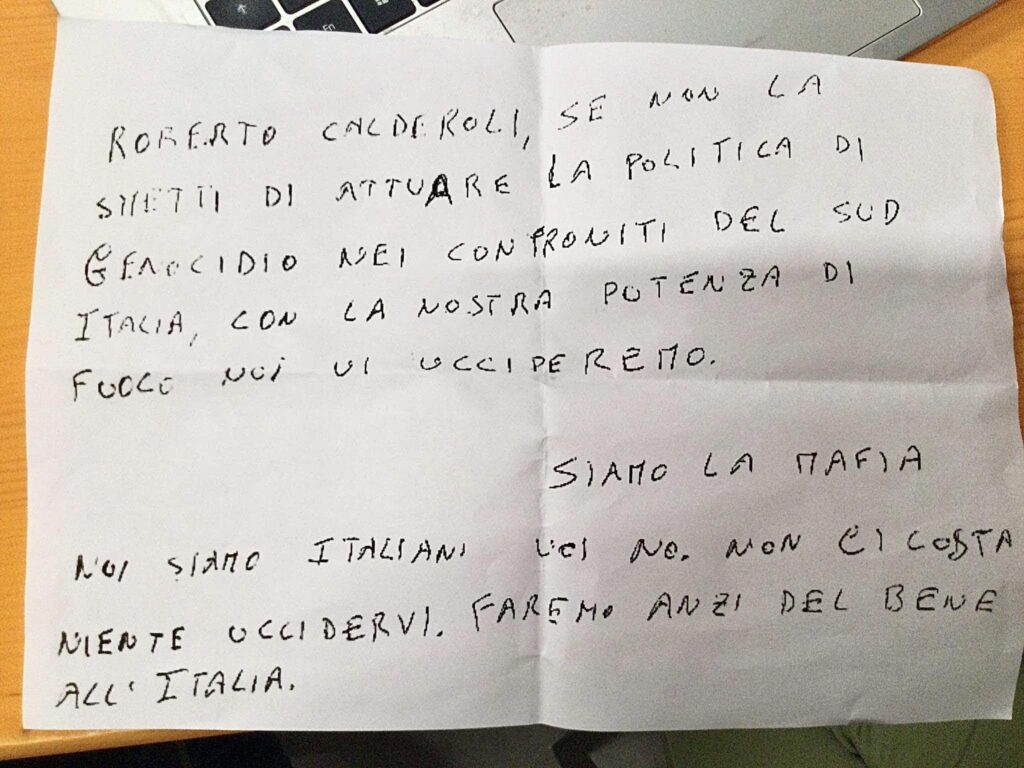 ROBERTO CALDEROLI, SE NON LA
SMETTI DI ATTUARE LA POLITICA DI
GENOCIDIO NEI CONFRONITI DEL SUD
ITALIA, CON LA NOSTRA POTENZA DI
FUOCO NOI VI UCCIDEREMO.
SIAMO LA MAFIA
NOI SIAMO ITALIANI VOI NO. NON CI COSTA
NIENTE UCCIDERVI. FAREMO ANZI DEL BENE
ALL'ITALIA.